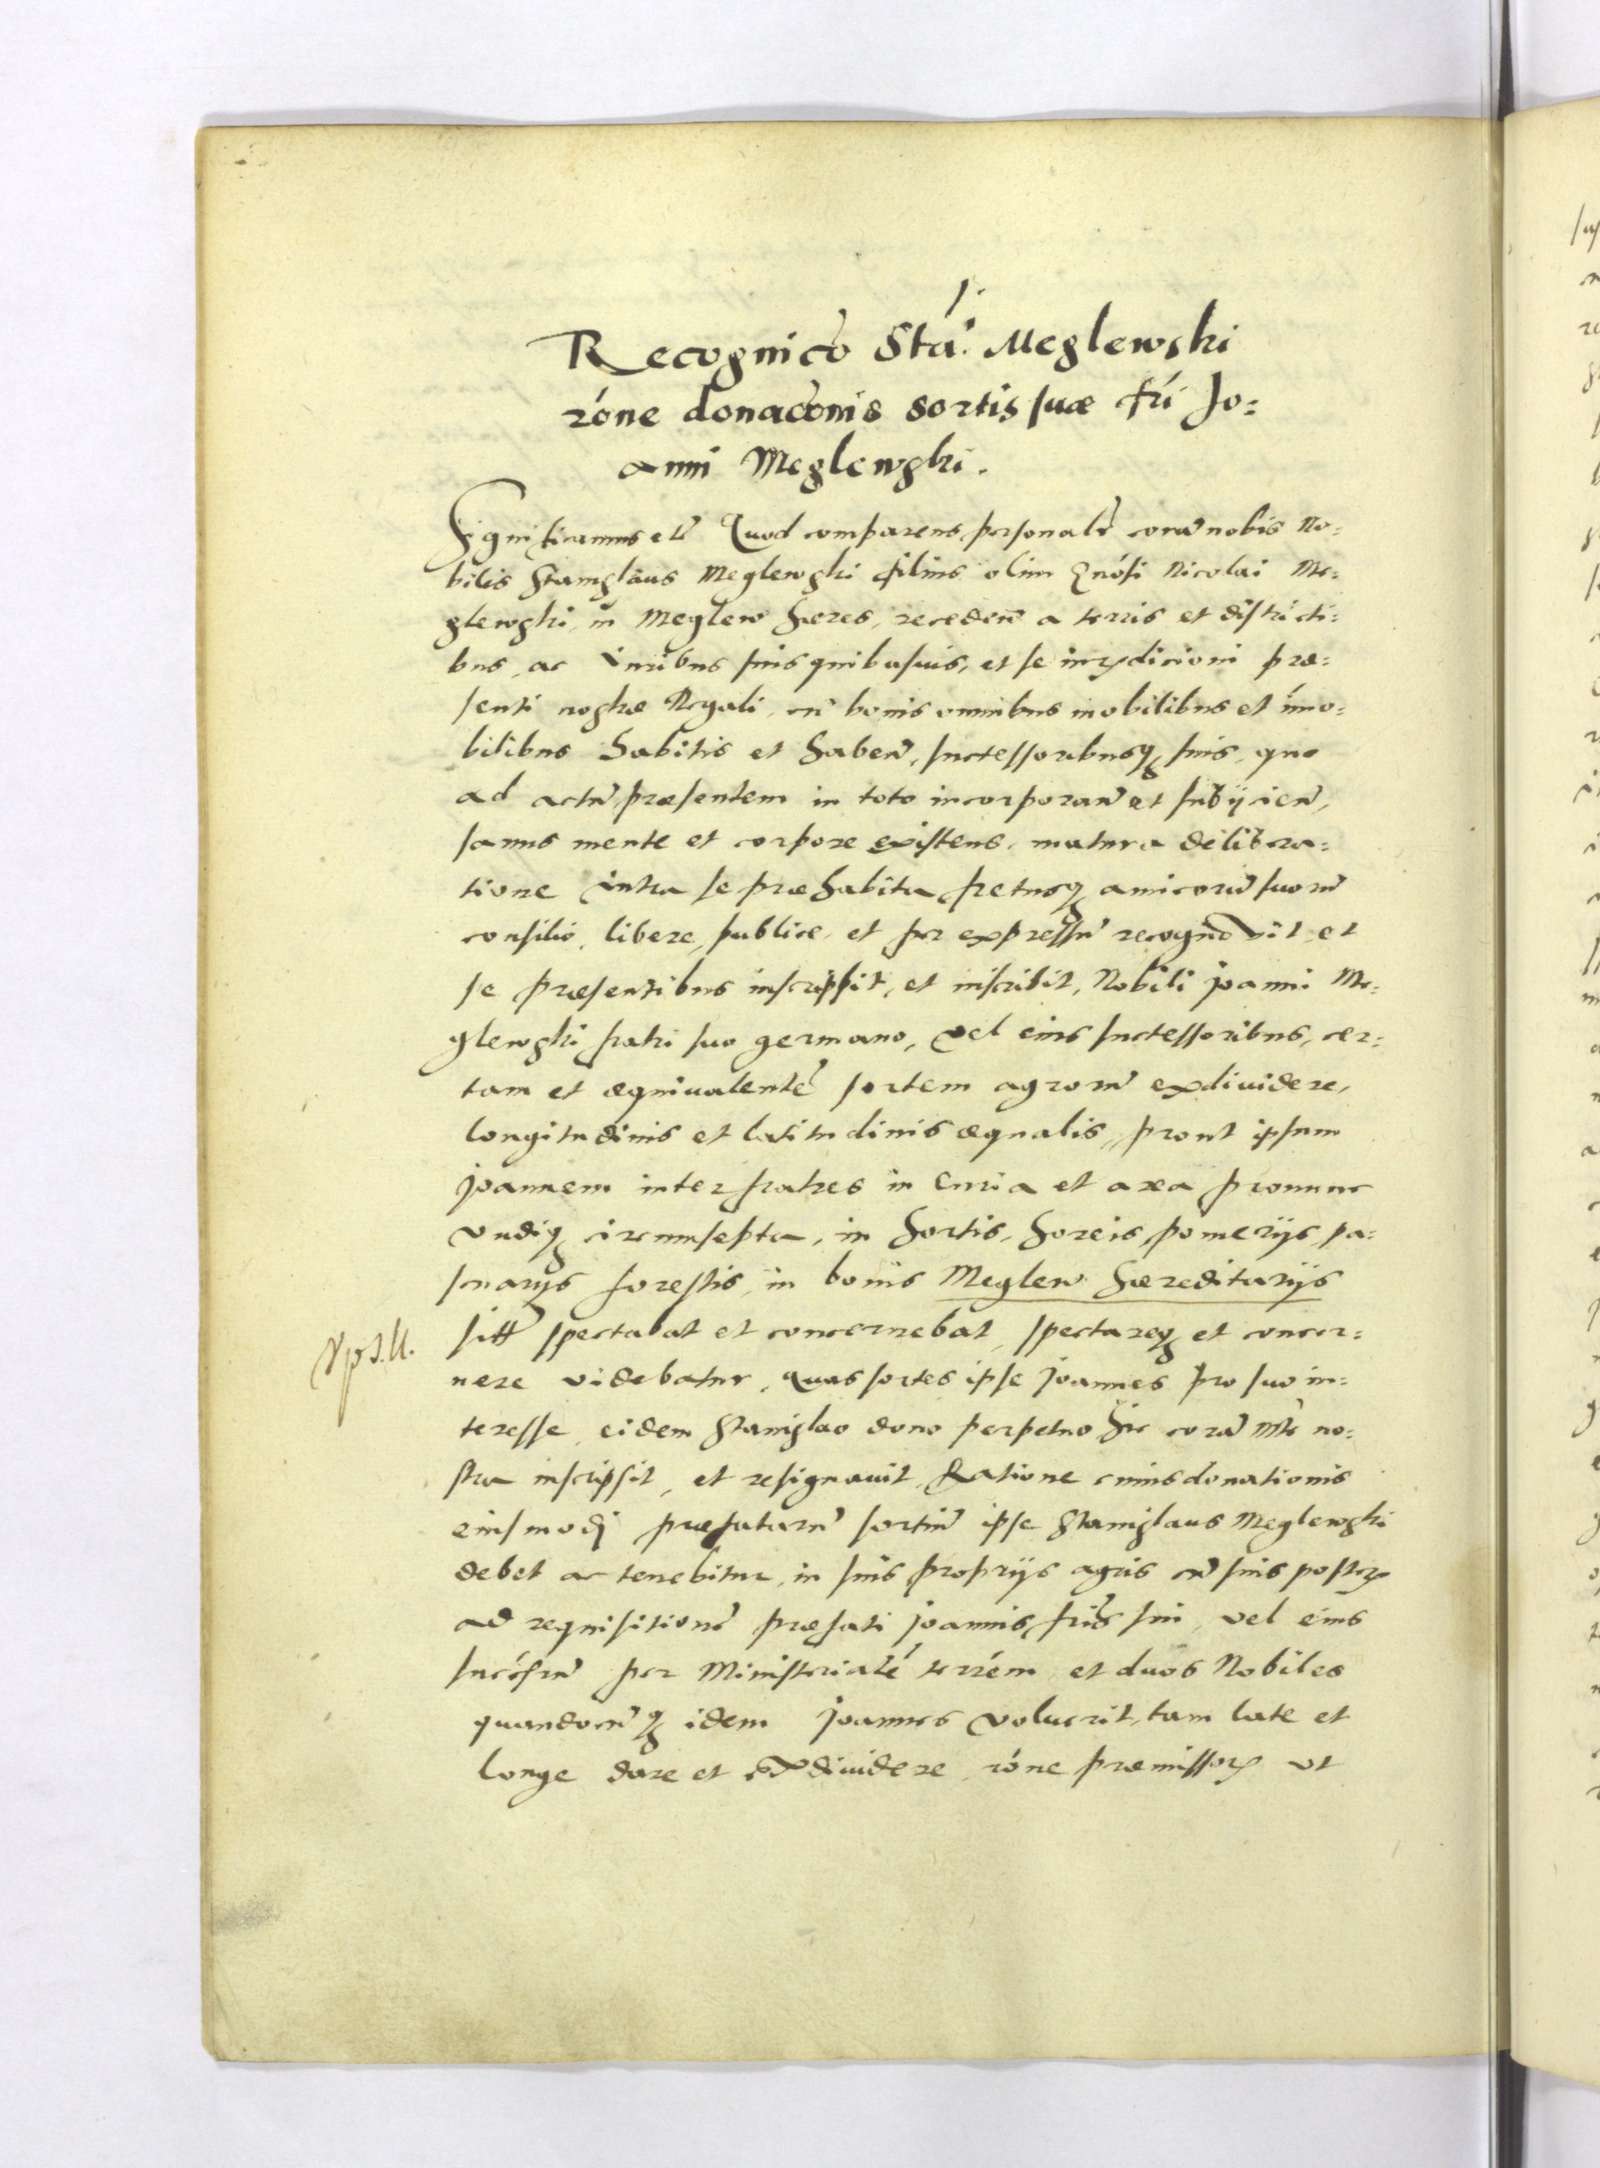 Recognico Sta: Meglewski
rone donaconis sortis suæ fri Jo=
anni Meglewski.
Significamus etc Quod comparens personalr coram nobis No=
bilis Stanislaus Meglewski filius olim Gnosi Nicolai Me=
glewski, in Meglew hæres, recedem a terris et districti=
bus, ac iuribus suis quibusuis, et se iurisdicioni præ=
senti nostræ Regali, cum bonis omnibus mobilibus et immo=
bilibus habitis et haben, successoribusq suis, quo
ad actum præsentem in toto incorporan et subijcien,
sanus mente et corpore existens, matura delibera=
tione intra se præhabita fretusq amicorum suorum
consilio, libere, publice, et per expressum recognovit, et
se præsentibus inscripsit, et inscribit, Nobili Joanni Me=
glewski fratri suo germano, vel eius successoribus, cer=
tam et æquivalentem sortem agrorum exdividere,
longitudinis et latitudinis æqualis, prout ipsum
Joannem inter fratres in Curia et area pronunc
undiq circumsepta, in hortis, horeis, pomerijs, pa=
scuarijs forestis, in bonis Meglew hæreditarijs
spectabat et concernebat, spectareq et concer=
nere videbatur, quas sortes ipse Joannes pro suo in=
teresse, eidem Stanislao dono perpetuo hic coram Mte no=
stra inscripsit, et resignavit, Ratione cuius donationis
eiusmodi præfatarum sortium ipse Stanislaus Meglewski
debet ac tenebitur, in suis proprijs agris cum suis poster
ad requisitionem præfati Joannis fris sui, vel eius
succsrum per Ministerialem terrem, et duos Nobiles
quandocumq idem Joannes voluerit, tam late et
longe dare et exdividere, rone præmissor, ut